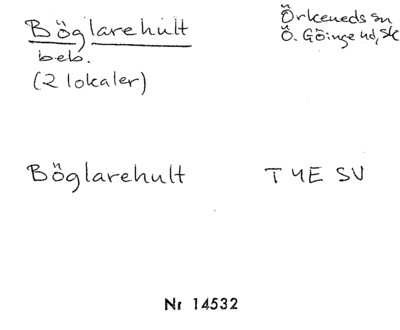 Böglarehult
Örkeneds sn
Ö. Göinge hd, Sk
beb.
(2 lokaler)
Böglarehult T 4E SV
Nr 14532